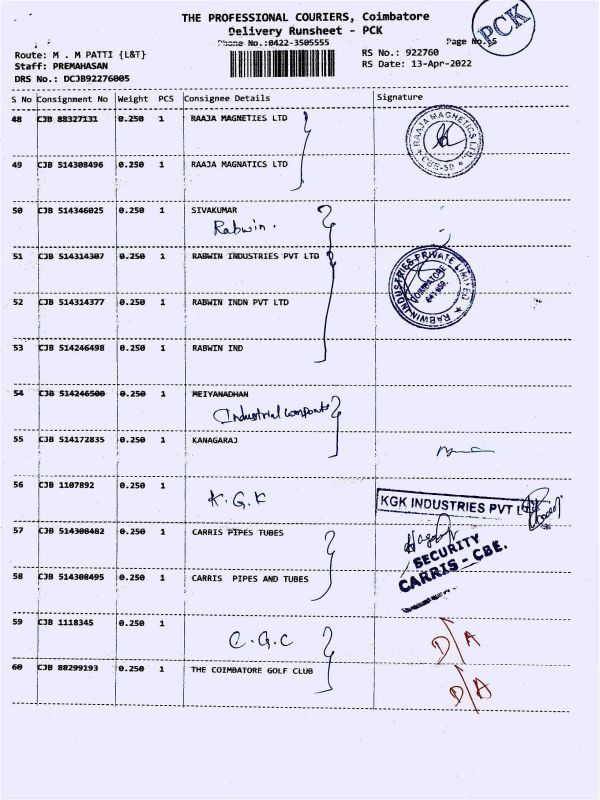 THE PROFESSIONAL COURIERS, Coimbatore
Delivery Runsheet - PCK
PCK
Phone No.:0422-3505555
Page No.
Route: M . M PATTI {L&T}
RS No.: 922760
Staff: PREMAHASAN
RS Date: 13-Apr-2022
DRS No.: DCJB92276005
S No Consignment No Weight PCS Consignee Details Signature
48 CJB 88327131 0.250 1 RAAJA MAGNETIES LTD
RAAJA MAGNETICS LTD. * CBE-50 *
49 CJB 514308496 0.250 1 RAAJA MAGNATICS LTD
50 CJB 514346025 0.250 1 SIVAKUMAR
Rabwin.
51 CJB 514314307 0.250 1 RABWIN INDUSTRIES PVT LTD
RABWIN INDUSTRIES PRIVATE LIMITED *
COIMBATORE
52 CJB 514314377 0.250 1 RABWIN INDN PVT LTD
53 CJB 514246498 0.250 1 RABWIN IND
54 CJB 514246500 0.250 1 MEIYANADHAN
Industrial
55 CJB 514172835 0.250 1 KANAGARAJ
56 CJB 1107892 0.250 1
K.G.K
KGK INDUSTRIES PVT LTD
57 CJB 514308482 0.250 1 CARRIS PIPES TUBES
SECURITY
CARRIS - CBE.
58 CJB 514308495 0.250 1 CARRIS PIPES AND TUBES
59 CJB 1118345 0.250 1
C.G.C
D/A
60 CJB 88299193 0.250 1 THE COIMBATORE GOLF CLUB
D/A